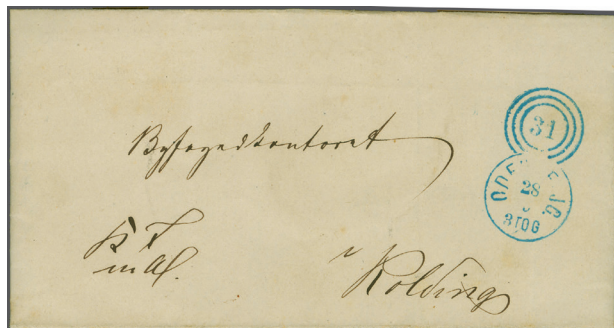 31
Byfogedkontoret
ODENSE JB.
28
3TOG
K T
m Al.
i Kolding